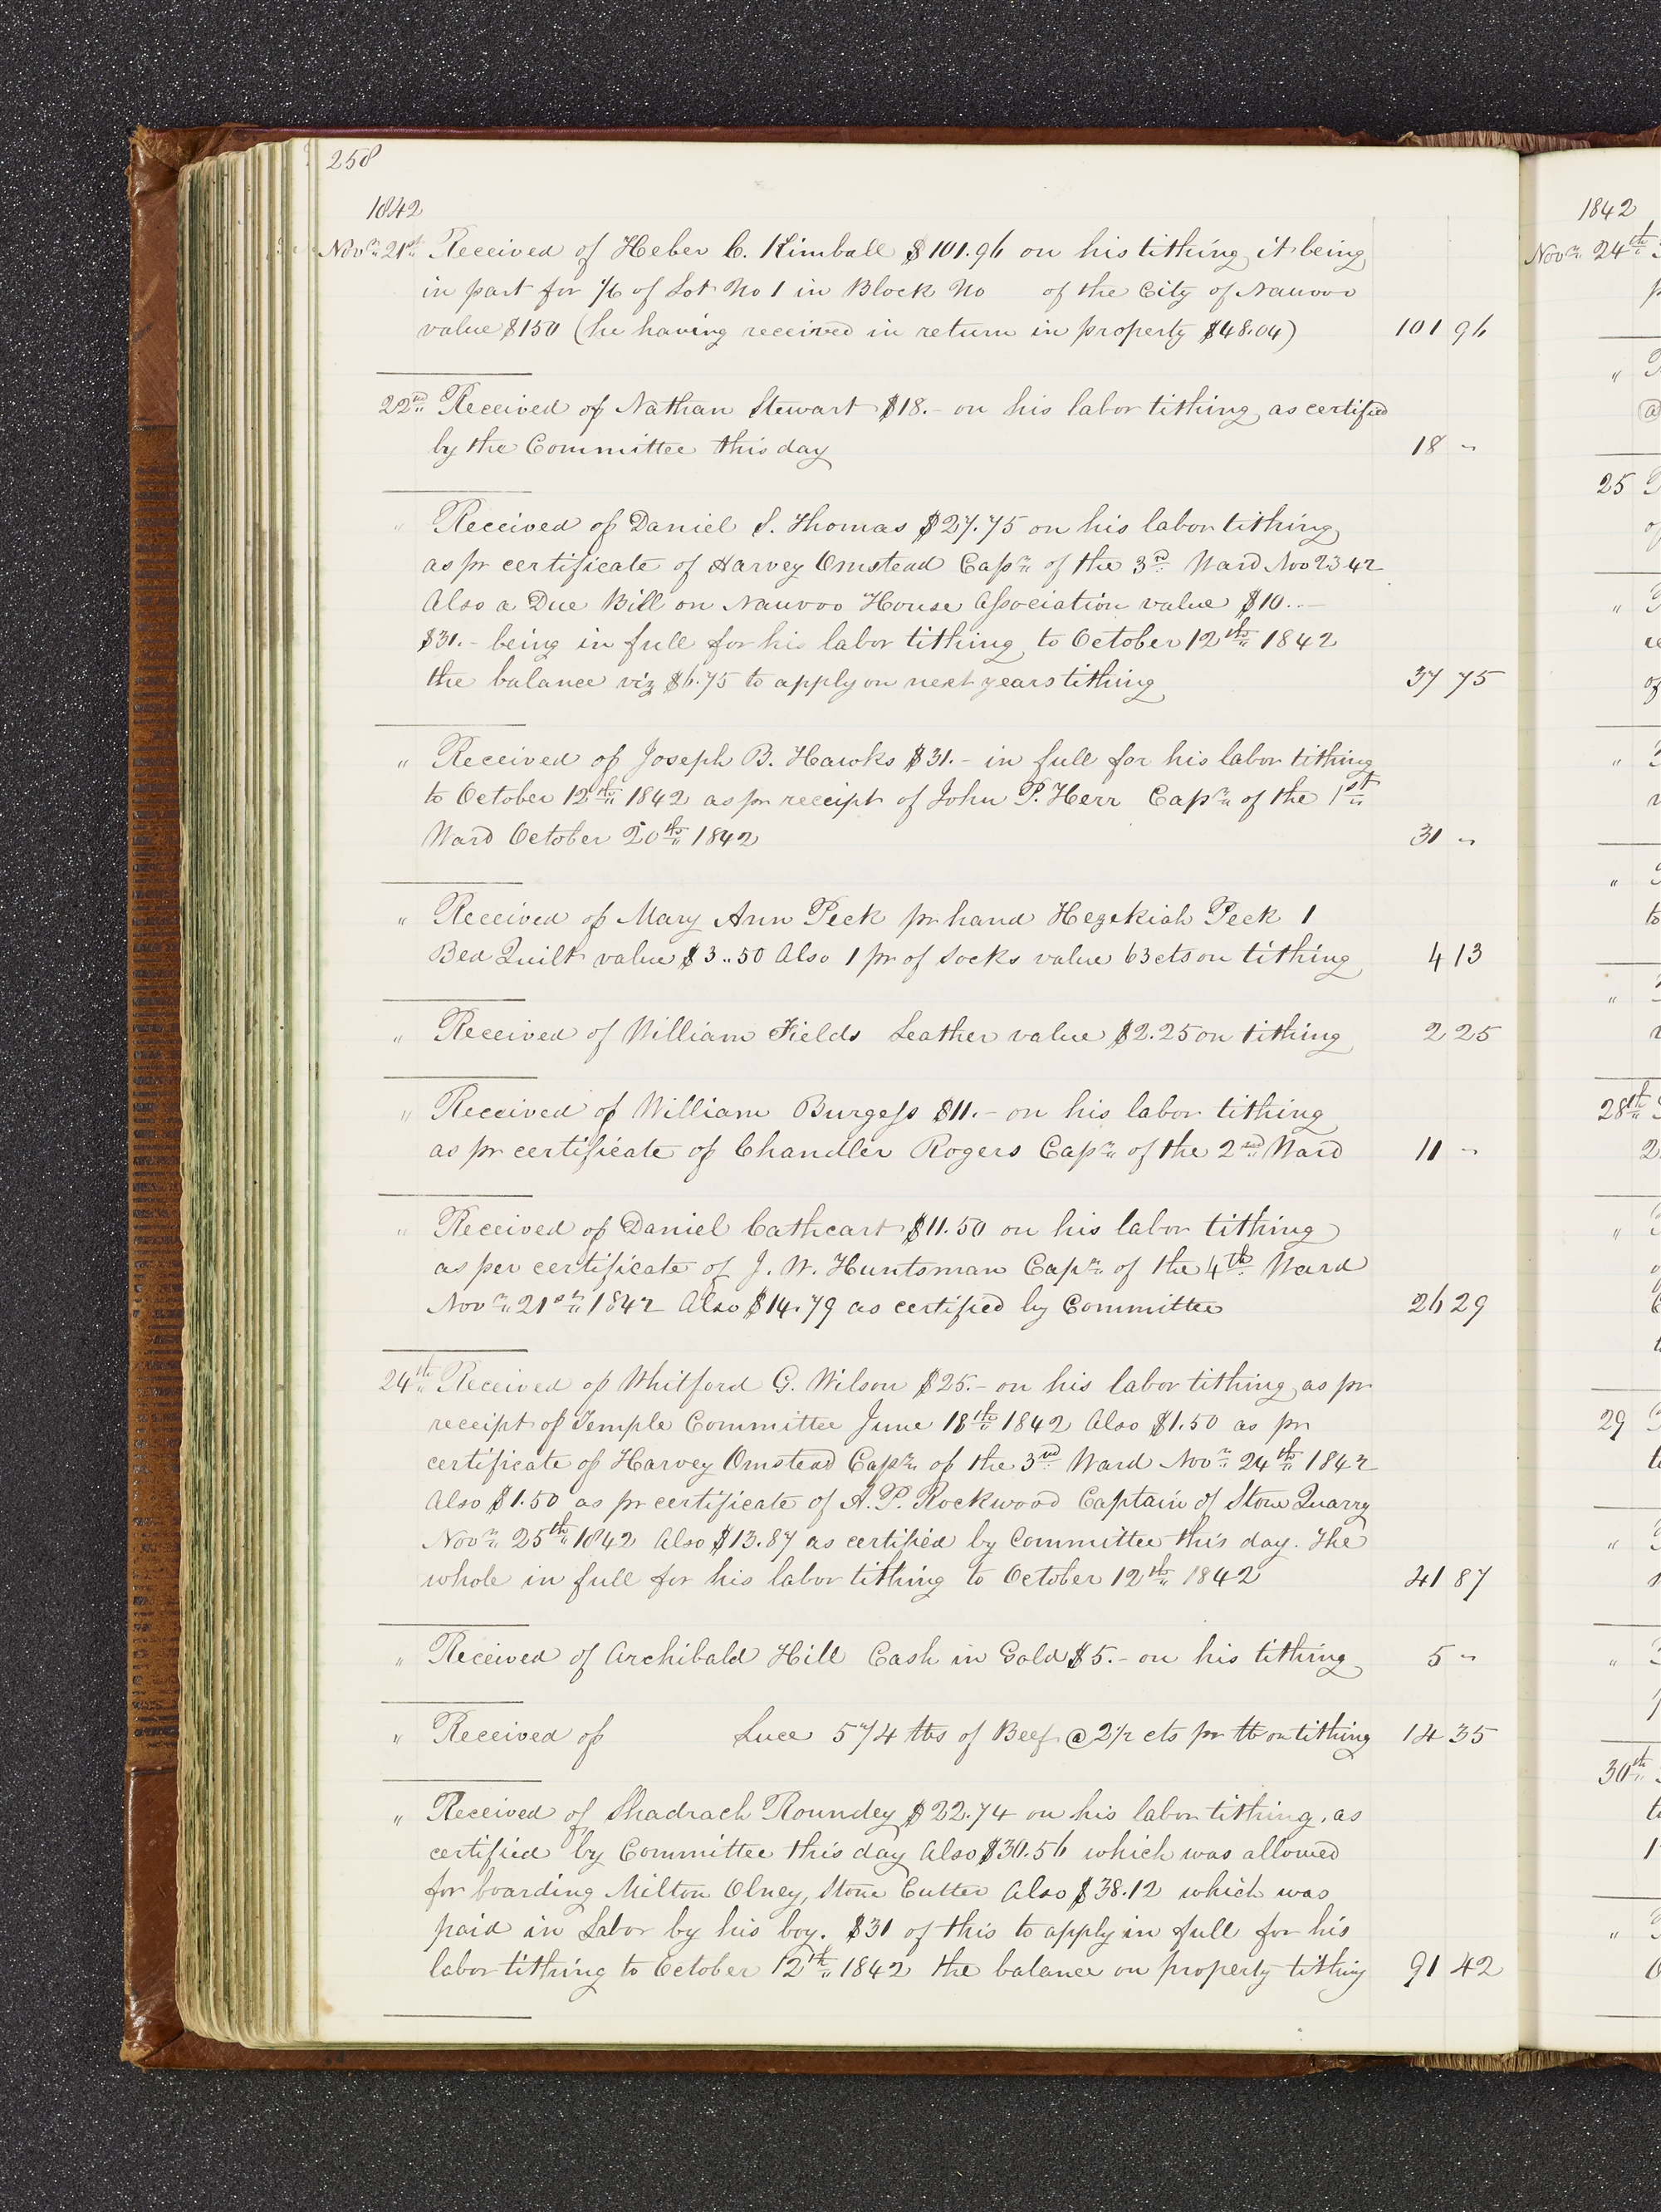 258
1842
Novr. 21st. Received of Heber C. Kimball $101.96 on his tithing, it being
in part for 1/6 of Lot No 1 in Block No of the City of Nauvoo
value $150 (he having received in return in property $48.04) 101 96
22nd. Received of Nathan Stewart $18.- on his labor tithing, as certified
by the Committee this day 18 -
" Received of Daniel S. Thomas $27.75 on his labor tithing
as pr certificate of Harvey Omstead Capn. of the 3rd. Ward Nov 23 42
Also a Due Bill on Nauvoo House Association value $10..-
$31.- being in full for his labor tithing, to October 12th. 1842
the balance viz $6.75 to apply on next years tithing 37 75
" Received of Joseph B. Hawks $31.- in full for his labor tithing
to October 12th. 1842 as pr receipt of John P. Herr Capn. of the 1st.
Ward October 20th. 1842 31 -
" Received of Mary Ann Peck pr hand Hezekiah Peck 1
Bed Quilt value $3..50 Also 1 pr of Socks value 63 cts on tithing 4 13
" Received of William Fields Leather value $2.25 on tithing 2 25
" Received of William Burgess $11.- on his labor tithing
as pr certificate of Chandler Rogers Capn. of the 2nd. Ward 11 -
" Received of Daniel Cathcart $11.50 on his labor tithing
as per certificate of J. W. Huntsman Capn. of the 4th. Ward
Novr. 21st. 1842 Also $14.79 as certified by Committee 26 29
24th. Received of Whitford G. Wilson $25.- on his labor tithing, as pr
receipt of Temple Committee June 18th. 1842 Also $1.50 as pr
certificate of Harvey Omstead Capn. of the 3rd. Ward Novr. 24th. 1842
Also $1.50 as pr certificate of A. P. Rockwood Captain of Stone Quarry
Novr. 25th. 1842 Also $13.87 as certified by Committee this day. The
whole in full for his labor tithing to October 12th. 1842 41 87
" Received of Archibald Hill Cash in Gold $5.- on his tithing 5 -
" Received of Luce 574 lbs of Beef @ 2 1/2 cts pr lb on tithing 14 35
" Received of Shadrach Roundey $22.74 on his labor tithing, as
certified by Committee this day Also $30.56 which was allowed
for boarding Milton Olney, Stone Cutter Also $38.12 which was
paid in Labor by his boy. $31 of this to apply in full for his
labor tithing to October 12th. 1842 the balance on property tithing 91 42
1842
Novr. 24th.
25
28th.
29
30th.